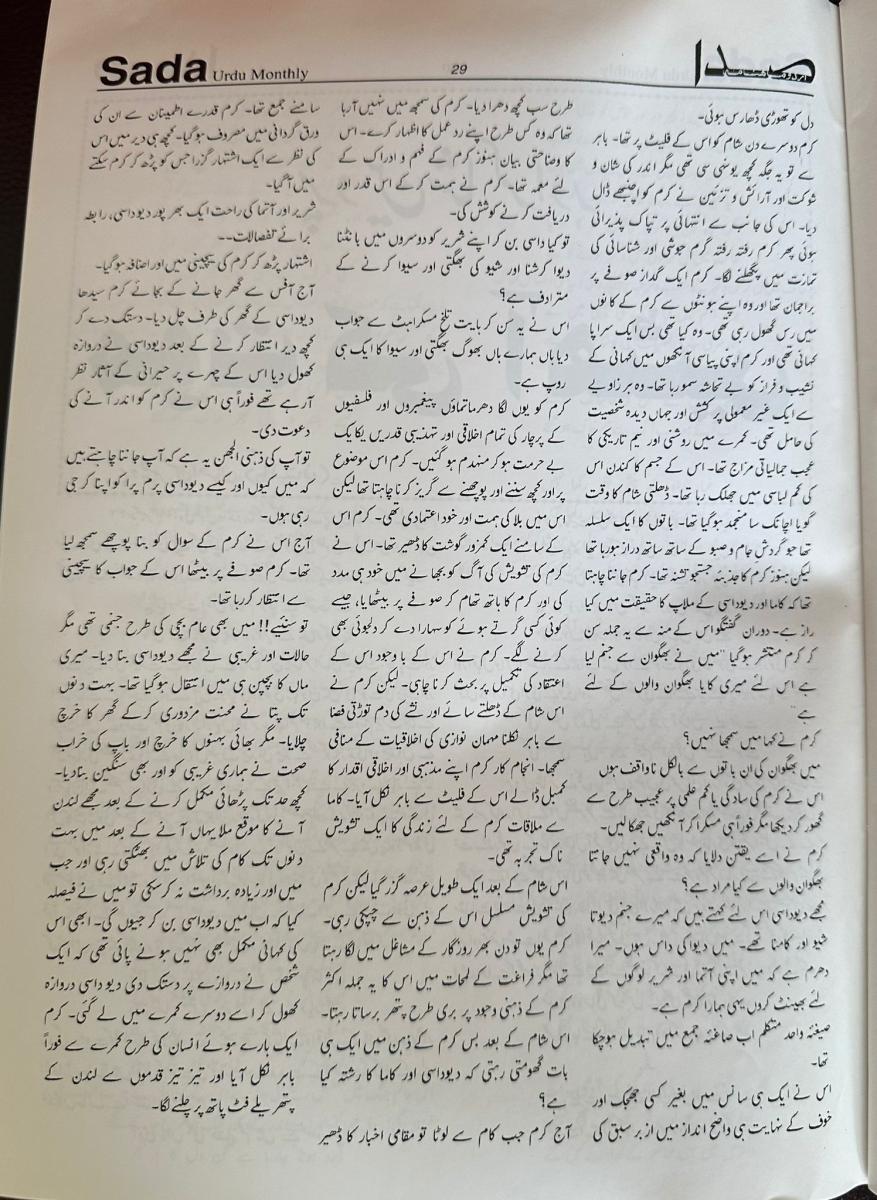 Sada Urdu Monthly
29
صدا
دل کو تھوڑی ڈھارس ہوئی۔
کرم دوسرے دن شام کو اس کے فلیٹ پر تھا۔ باہر
سے تو یہ جگہ کچھ یونہی سی تھی مگر اندر کی شان و
شوکت اور آرائش و تزئین نے کرم کو اچنبھے ڈال
دیا۔ اس کی جانب سے انتہائی پر تپاک پذیرائی
ہوئی پھر کرم رفتہ رفتہ گرم جوشی اور شناسائی کی
تمازت میں پگھلنے لگا۔ کرم ایک گداز صوفے پر
براجمان تھا اور وہ اپنے ہونٹوں سے کرم کے کانوں
میں رس گھول رہی تھی۔ وہ کیا تھی بس ایک سراپا
کہانی تھی اور کرم اپنی پیاسی آنکھوں میں کہانی کے
نشیب و فراز کو بے تحاشہ سمو رہا تھا۔ وہ ہر زاویے
سے ایک غیر معمولی پر کشش اور جہاں دیدہ شخصیت
کی حامل تھی۔ کمرے میں روشنی اور نیم تاریکی کا
عجب جمالیاتی مزاج تھا۔ اس کے جسم کا کندن اس
کی کم لباسی میں جھلک رہا تھا۔ ڈھلتی شام کا وقت
گویا اچانک سا منجمد ہوگیا تھا۔ باتوں کا ایک سلسلہ
تھا جو گردش جام و صبو کے ساتھ ساتھ دراز ہو رہا تھا
لیکن ہنوز کرم کا جذبئہ جستجو تشنہ تھا۔ کرم جاننا چاہتا
تھا کہ کاما اور دیوداسی کے ملاپ کا حقیقت میں کیا
راز ہے۔ دوران گفتگو اس کے منہ سے یہ جملہ سن
کر کرم منتشر ہو گیا "میں نے بھگوان سے جنم لیا
ہے اس لئے میری کایا بھگوان والوں کے لئے
ہے"
کرم نے کہا میں سمجھا نہیں؟
میں بھگوان کی ان باتوں سے بالکل ناواقف ہوں
اس نے کرم کی سادگی یا کم علمی پر عجیب طرح سے
گھور کر دیکھا مگر فوراً ہی مسکرا کر آنکھیں جھکا لیں۔
کرم نے اسے یقین دلایا کہ وہ واقعی نہیں جانتا
بھگوان والوں سے کیا مراد ہے؟
مجھے دیوداسی اس لئے کہتے ہیں کہ میرے جنم دیوتا
شیو اور کامنا تھے۔ میں دیوا کی داس ہوں۔ میرا
دھرم ہے کہ میں اپنی آتما اور شریر لوگوں کے
لئے بھینٹ کروں یہی ہمارا کرم ہے۔
صیغئہ واحد متکلم اب صاغئہ جمع میں تبدیل ہوچکا
تھا۔
اس نے ایک ہی سانس میں بغیر کسی جھجک اور
خوف کے نہایت ہی واضح انداز میں ازبر سبق کی
طرح سب کچھ دھرا دیا۔ کرم کی سمجھ میں نہیں آرہا
تھا کہ وہ کس طرح اپنے رد عمل کا اظہار کرے۔ اس
کا وضاحتی بیان ہنوز کرم کے فہم و ادراک کے
لئے معمہ تھا۔ کرم نے ہمت کرکے اس قدر اور
دریافت کرنے کو شش کی۔
تو کیا داسی بن کر اپنے شریر کو دوسروں میں بانٹنا
دیوا کرشنا اور شیو کی بھگتی اور سیوا کرنے کے
مترادف ہے؟
اس نے یہ سن کر بایت تلخ مسکراہٹ سے جواب
دیا ہاں ہمارے ہاں بھوگ بھگتی اور سیوا کا ایک ہی
روپ ہے۔
کرم کو یوں لگا دھرماتماؤں پیغمبروں اور فلسفیوں
کے پرچار کی تمام اخلاقی اور تہذیبی قدریں یکایک
بے حرمت ہو کر منہدم ہو گئیں۔ کرم اس موضوع
پر اور کچھ سننے اور پوچھنے سے گریز کرنا چاہتا تھا لیکن
اس میں بلا کی ہمت اور خود اعتمادی تھی۔ کرم اس
کے سامنے ایک کمزور گوشت کا ڈھیر تھا۔ اس نے
کرم کی تشویش کی آگ کو بجھانے میں خود ہی مدد
کی اور کرم کا ہاتھ تھام کر صوفے پر بیٹھایا، جیسے
کوئی کسی گرتے ہوئے کو سہارا دے کر دلجوئی بھی
کرنے لگے۔ کرم نے اس کے با وجود اس کے
اعتقاد کی تکمیل پر بحث کرنا چاہی۔ لیکن کرم نے
اس شام کے ڈھلتے سائے اور نشے کی دم توڑتی فضا
سے باہر نکلنا مہمان نوازی کی اخلاقیات کے منافی
سمجھا۔ انجام کار کرم اپنے مذہبی اور اخلاقی اقدار کا
کمبل ڈالے اس کے فلیٹ سے باہر نکل آیا۔ کاما
سے ملاقات کرم کے لئے زندگی کا ایک تشویش
ناک تجربہ تھی۔
اس شام کے بعد ایک طویل عرصہ گزر گیا لیکن کرم
کی تشویش مسلسل اس کے ذہن سے چپکی رہی۔
کرم یوں تو دن بھر روزگار کے مشاغل میں لگا رہتا
تھا مگر فراغت کے لمحات میں اس کا یہ جملہ اکثر
کرم کے ذہنی وجود پر بری طرح پتھر برساتا رہتا۔
اس شام کے بعد بس کرم کے ذہن میں ایک ہی
بات گھومتی رہتی کہ دیوداسی اور کاما کا رشتہ کیا
ہے؟
آج کرم جب کام سے لوٹا تو مقامی اخبار کا ڈھیر
سامنے جمع تھا۔ کرم قدرے اطمینان سے ان کی
ورق گردانی میں مصروف ہوگیا۔ کچھ ہی دیر میں اس
کی نظر سے ایک اشتہار گزرا جس کو پڑھ کر کرم سکتے
میں آگیا۔
شریر اور آتما کی راحت ایک بھر پور دیوداسی، رابطہ
برائے تفصالات۔۔
اشتہار پڑھ کر کرم کی بیچینی میں اور اضافہ ہو گیا۔
آج آفس سے گھر جانے کے بجائے کرم سیدھا
دیوداسی کے گھر کی طرف چل دیا۔ دستک دے کر
کچھ دیر انتظار کرنے کے بعد دیوداسی نے دروازہ
کھول دیا اس کے چہرے پر حیرانی کے آثار نظر
آرہے تھے فوراً ہی اس نے کرم کو اندر آنے کی
دعوت دی۔
تو آپ کی ذہنی الجھن یہ ہے کہ آپ جاننا چاہتے ہیں
کہ میں کیوں اور کیسے دیوداسی پرم پرا کو اپنا کر جی
رہی ہوں۔
آج اس نے کرم کے سوال کو بنا پوچھے سمجھ لیا
تھا۔ کرم صوفے پر بیٹھا اس کے جواب کا بیچینی
سے انتظار کر رہا تھا۔
تو سنیئے!! میں بھی عام بچی کی طرح جنمی تھی مگر
حالات اور غریبی نے مجھے دیوداسی بنا دیا۔ میری
ماں کا بچپن ہی میں انتقال ہو گیا تھا۔ بہت دنوں
تک پتا نے محنت مزدوری کرکے گھر کا خرچ
چلایا۔ مگر بھائی بہنوں کا خرچ اور باپ کی خراب
صحت نے ہماری غریبی کو اور بھی سنگین بنا دیا۔
کچھ حد تک پڑھائی مکمل کرنے کے بعد مجھے لندن
آنے کا موقع ملا یہاں آنے کے بعد میں بہت
دنوں تک کام کی تلاش میں بھٹکتی رہی اور جب
میں اور زیادہ برداشت نہ کرسکی تو میں نے فیصلہ
کیا کہ اب میں دیوداسی بن کر جیوں گی۔ ابھی اس
کی کہانی مکمل بھی نہیں ہونے پائی تھی کہ ایک
شخص نے دروازے پر دستک دی دیو داسی دروازہ
کھول کر اسے دوسرے کمرے میں لے گئی۔ کرم
ایک ہارے ہوئے انسان کی طرح کمرے سے فوراً
باہر نکل آیا اور تیز تیز قدموں سے لندن کے
پتھریلے فٹ پاتھ پر چلنے لگا۔